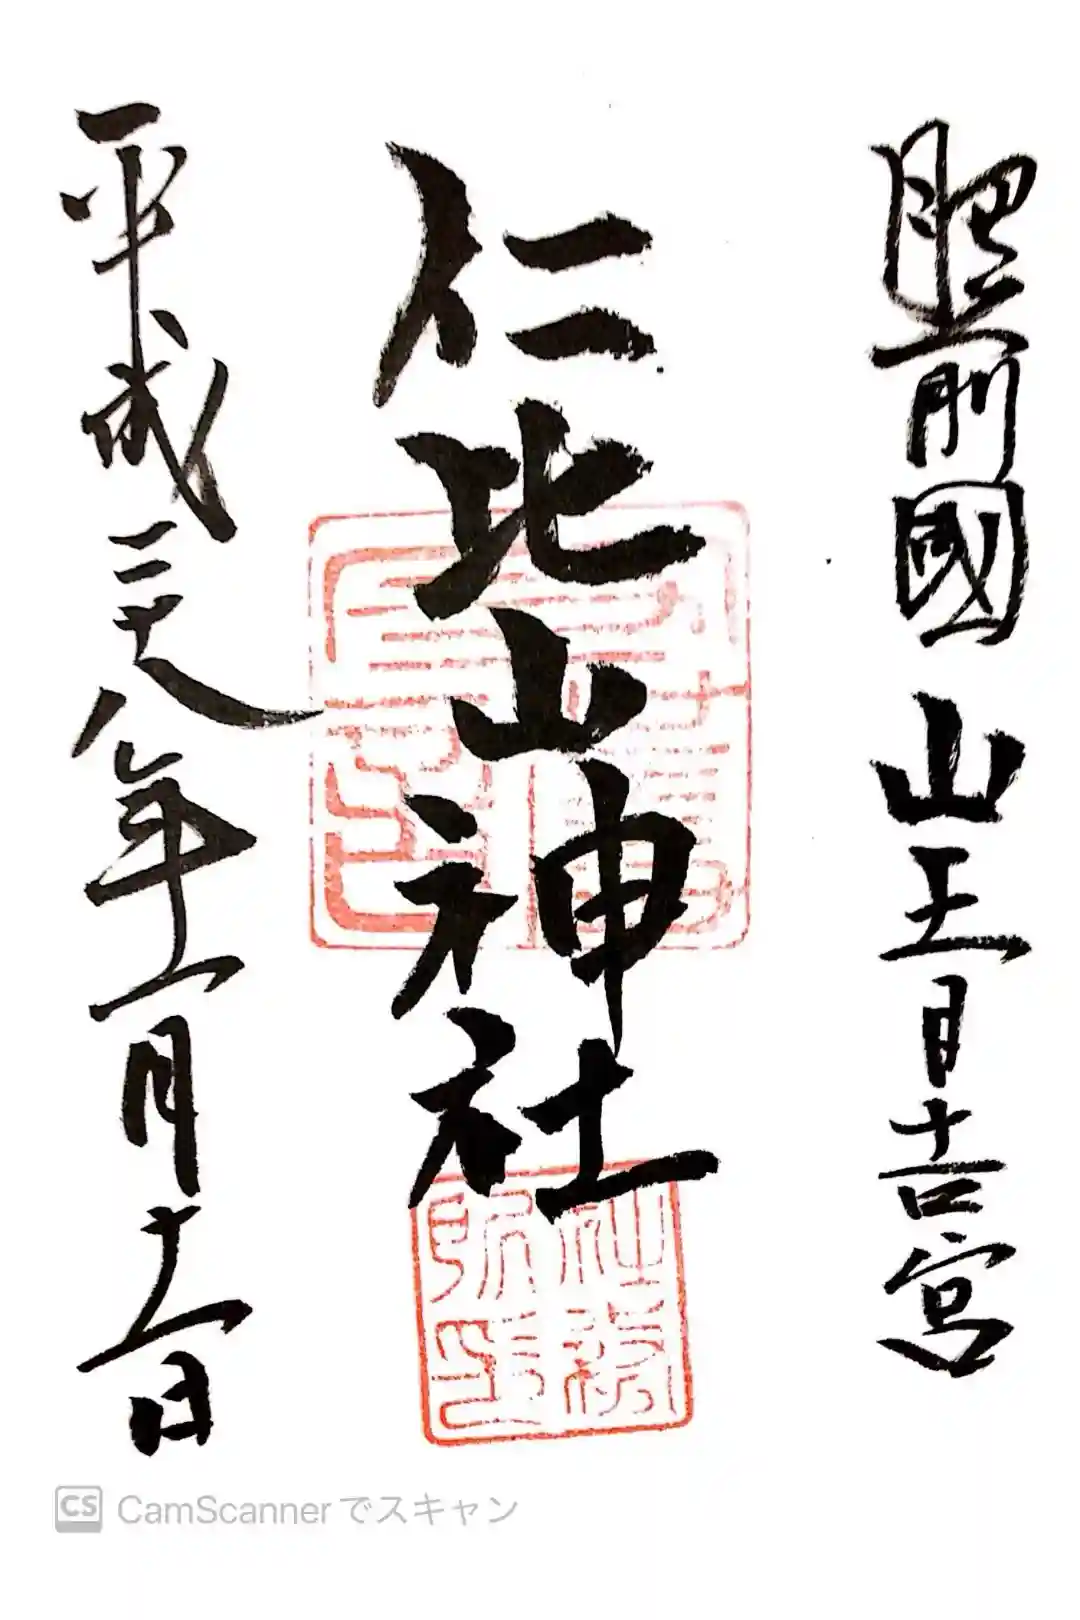 肥前國 山王日吉宮
仁比山神社
平成二十八年一月十一日
社務所印
CS CamScannerでスキャン